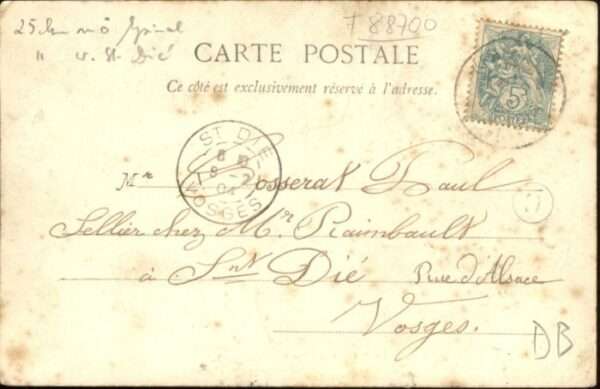 25 km nö Epinal
" w. St Dié
F 88700
CARTE POSTALE
Ce côté est exclusivement réservé à l'adresse.
5
ST DIE
VOSGES
Mr Gosserat Paul
Sellier chez Mr Raimbault
à Snt Dié Rue d'Alsace
Vosges.
DB